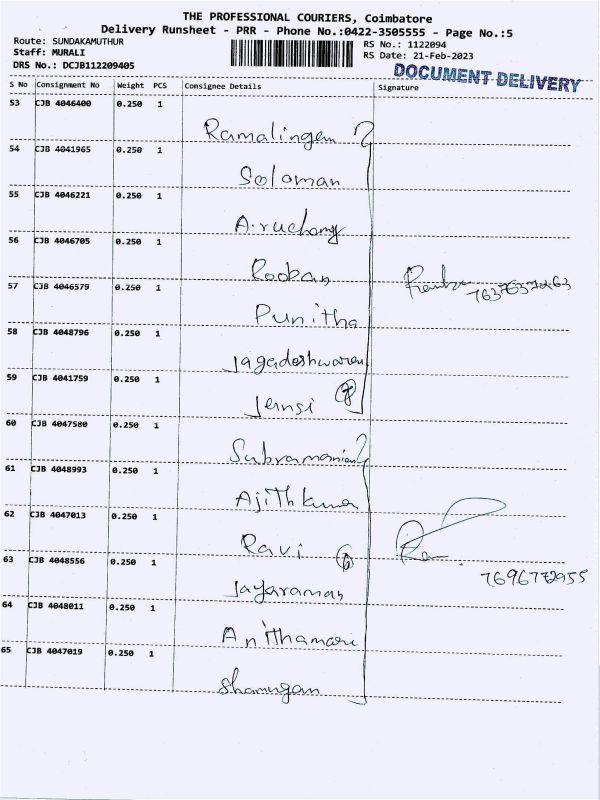 THE PROFESSIONAL COURIERS, Coimbatore
Delivery Runsheet - PRR - Phone No.:0422-3505555 - Page No.:5
Route: SUNDAKAMUTHUR
RS No.: 1122094
Staff: MURALI
RS Date: 21-Feb-2023
DRS No.: DCJB112209405
DOCUMENT DELIVERY
S No Consignment No Weight PCS Consignee Details Signature
53 CJB 4046400 0.250 1
Ramalingam
54 CJB 4041965 0.250 1
Soloman
55 CJB 4046221 0.250 1
56 CJB 4046705 0.250 1
Rooban
57 CJB 4046579 0.250 1
Punitha
58 CJB 4048796 0.250 1
Jagadeshwaren
59 CJB 4041759 0.250 1
Jensi 7
60 CJB 4047580 0.250 1
Subramanian
61 CJB 4048993 0.250 1
Ajithkumar
62 CJB 4047013 0.250 1
Ravi 6
7696772955
63 CJB 4048556 0.250 1
Jayaraman
64 CJB 4048011 0.250 1
Anithamari
65 CJB 4047019 0.250 1
Shanmugam